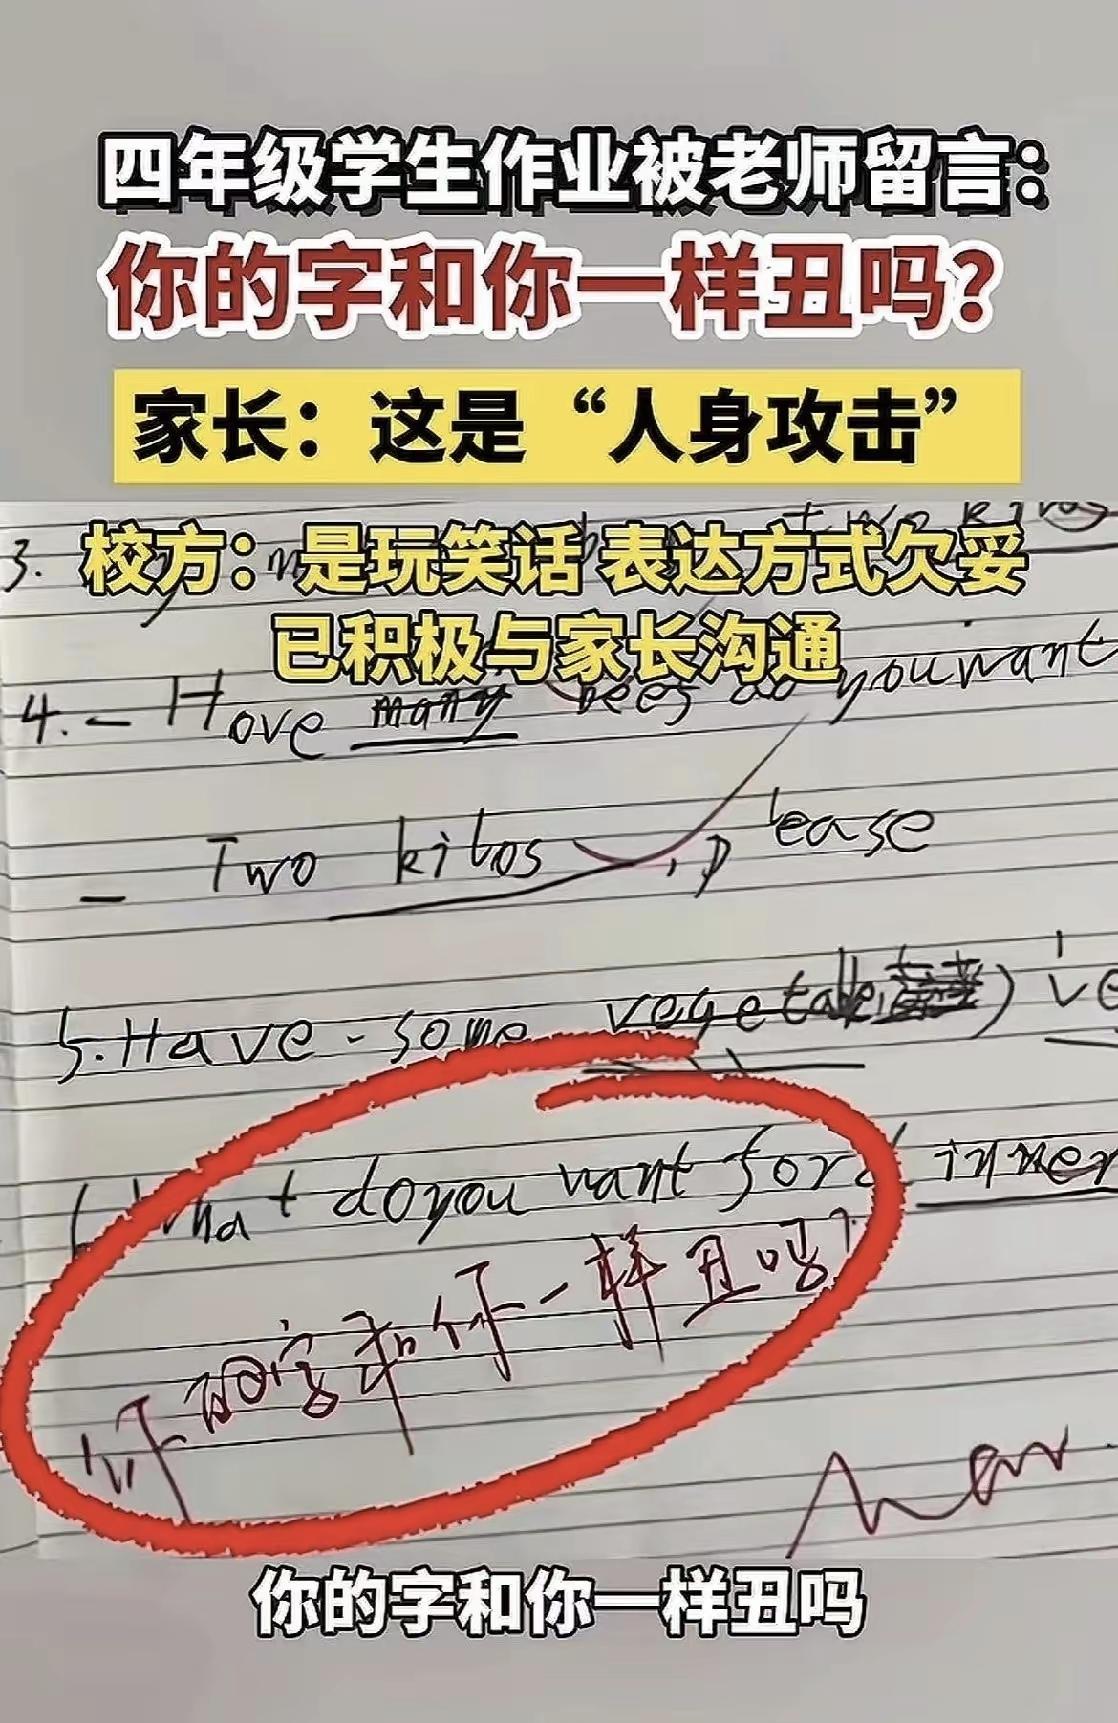 四年级学生作业被老师留言：
你的字和你一样丑吗？
家长：这是“人身攻击”
校方：是玩笑话 表达方式欠妥
已积极与家长沟通
3.
4. - Hove many bees do you want
- Two kilos , please
5. Have some vegetable
what do you want for dinner
你的字和你一样丑吗？
你的字和你一样丑吗